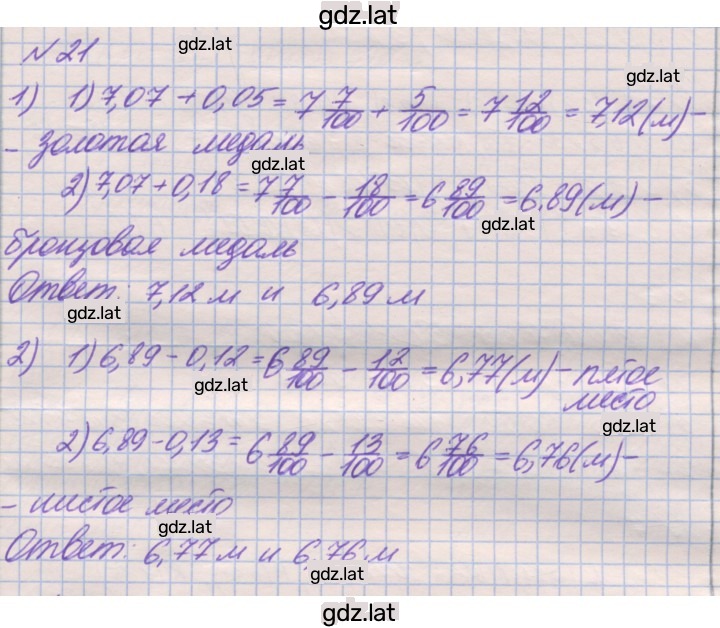 gdz.lat
№ 21
gdz.lat
gdz.lat
1) 1) 7,07 + 0,05 = 7 7/100 + 5/100 = 7 12/100 = 7,12 (м) -
- золотая медаль
gdz.lat
2) 7,07 + 0,18 = 7 7/100 - 18/100 = 6 89/100 = 6,89 (м) -
gdz.lat
бронзовая медаль
Ответ: 7,12 м и 6,89 м
gdz.lat
2) 1) 6,89 - 0,12 = 6 89/100 - 12/100 = 6,77 (м) - пятое
место
gdz.lat
gdz.lat
2) 6,89 - 0,13 = 6 89/100 - 13/100 = 6 76/100 = 6,76 (м) -
- шестое место
gdz.lat
Ответ: 6,77 м и 6,76 м
gdz.lat
gdz.lat